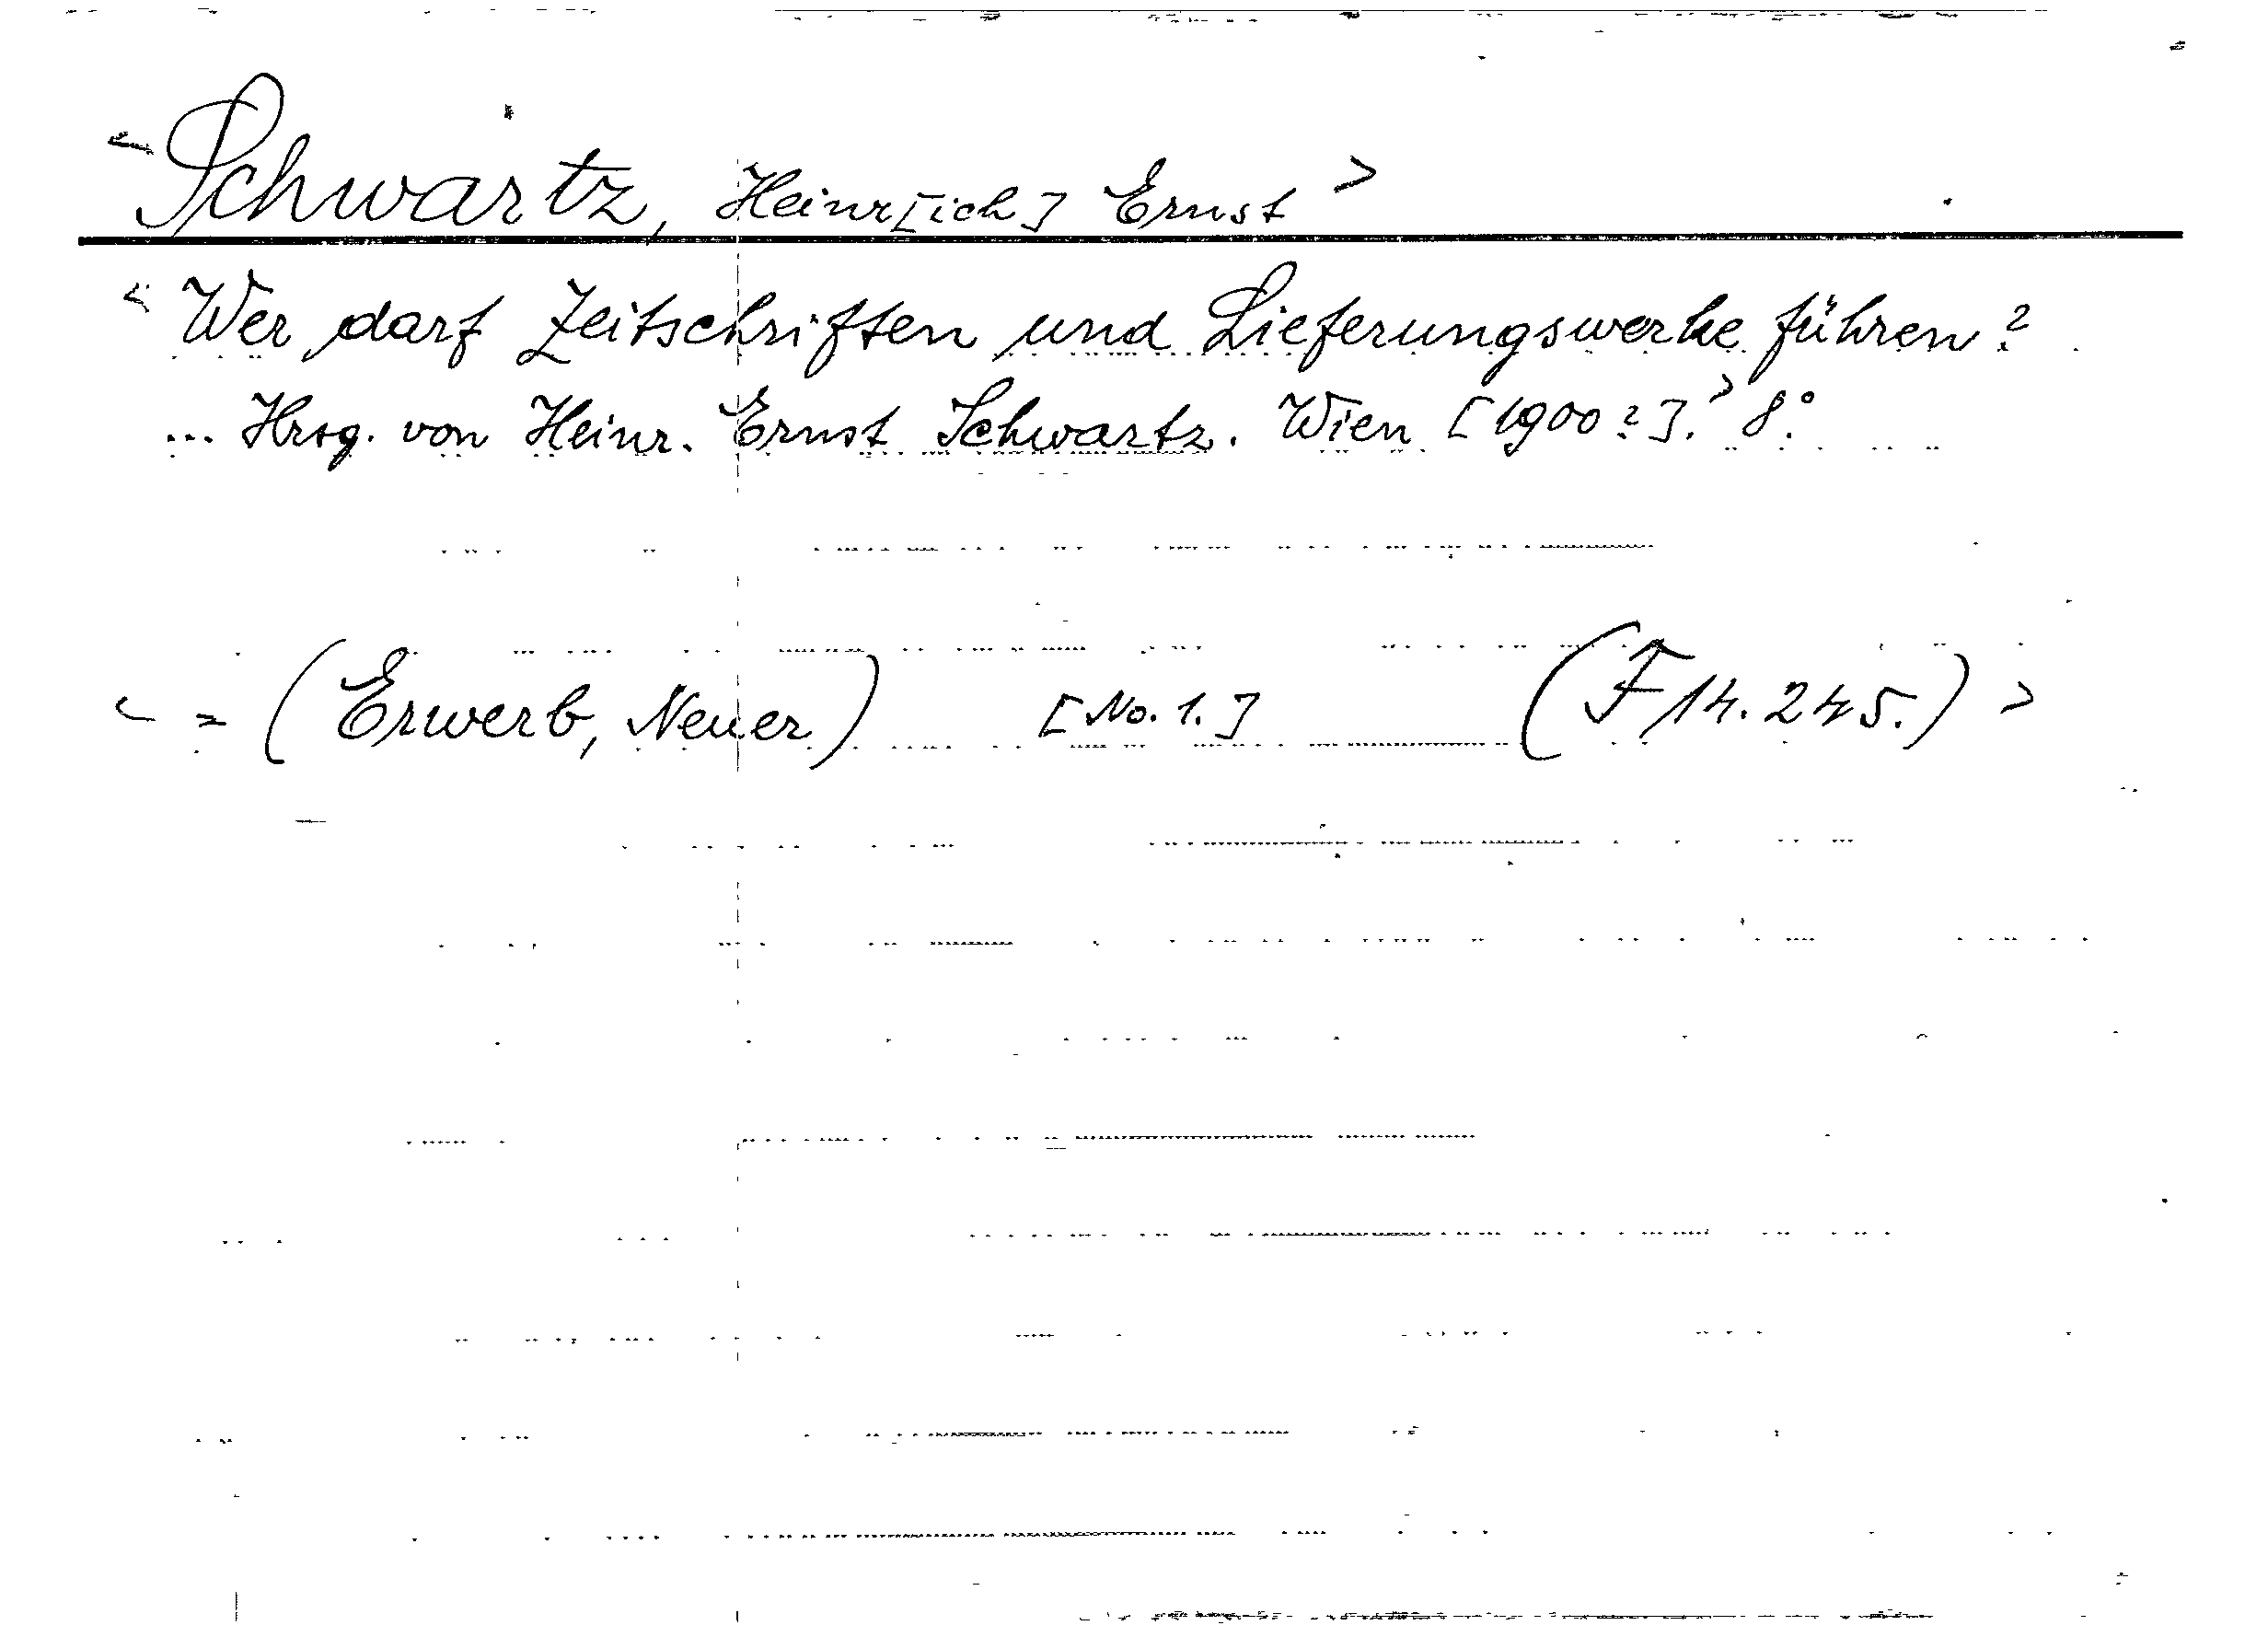 < Schwartz, Heinr[ich] Ernst >
< Wer darf Zeitschriften und Lieferungswerke führen?
... Hrsg. von Heinr. Ernst Schwartz. Wien [1900?]. > 8°.
< = (Erwerb, Neuer) [No. 1.] (F 14.245.) >